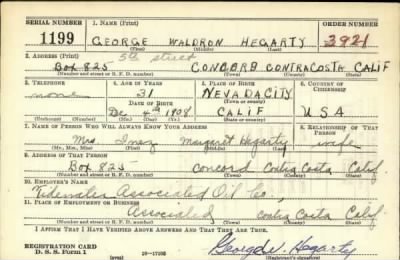 SERIAL NUMBER 1. NAME (Print) ORDER NUMBER
1199 GEORGE WALDRON HEGARTY 3921
(First) (Middle) (Last)
2. ADDRESS (Print) 5th street
Box 825 CONCORD CONTRACOSTA CALIF
(Number and street or R. F. D. number) (Town) (County) (State)
3. TELEPHONE 4. AGE IN YEARS 5. PLACE OF BIRTH 6. COUNTRY OF CITIZENSHIP
none 31 NEVADACITY
DATE OF BIRTH (Town or county)
Dec 4th 1908 CALIF USA
(Exchange) (Number) (Mo.) (Day) (Yr.) (State or country)
7. NAME OF PERSON WHO WILL ALWAYS KNOW YOUR ADDRESS 8. RELATIONSHIP OF THAT PERSON
Mrs Margaret Hegarty wife
(Mr., Mrs., Miss) (First) (Middle) (Last)
9. ADDRESS OF THAT PERSON
Box 825 Concord Contra Costa Calif.
(Number and street or R. F. D. number) (Town) (County) (State)
10. EMPLOYER'S NAME
Tidewater Associated Oil Co.,
11. PLACE OF EMPLOYMENT OR BUSINESS
Associated, Contra Costa Calif.
(Number and street or R. F. D. number) (Town) (County) (State)
I AFFIRM THAT I HAVE VERIFIED ABOVE ANSWERS AND THAT THEY ARE TRUE.
REGISTRATION CARD
D. S. S. Form 1 George W. Hegarty